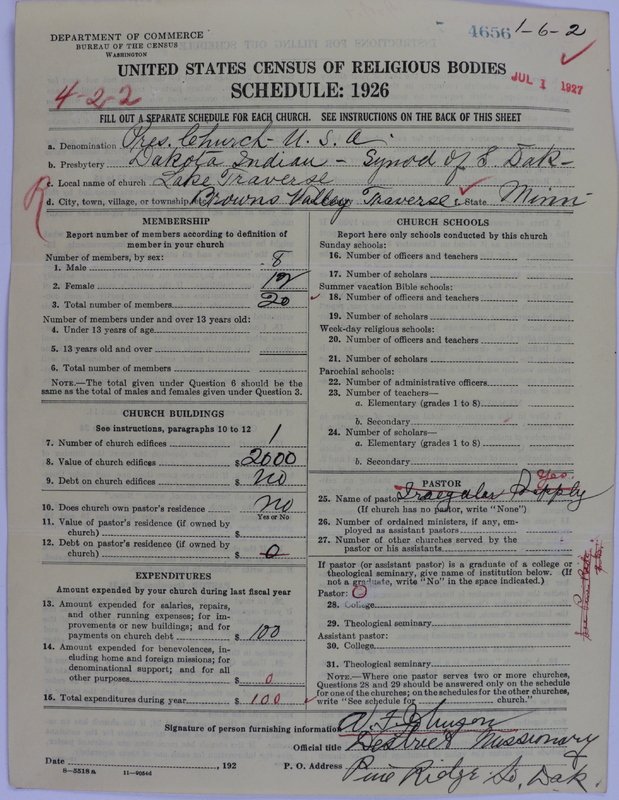 4656 1-6-2
DEPARTMENT OF COMMERCE
BUREAU OF THE CENSUS
WASHINGTON
UNITED STATES CENSUS OF RELIGIOUS BODIES
JUL 1 1927
4-2-2
SCHEDULE: 1926
FILL OUT A SEPARATE SCHEDULE FOR EACH CHURCH. SEE INSTRUCTIONS ON THE BACK OF THIS SHEET
a. Denomination Pres. Church U. S. A.
b. Presbytery Dakota Indian - Synod of S Dak-
c. Local name of church Lake Traverse
R
d. City, town, village, or township Browns Valley Traverse State Minn-
MEMBERSHIP
Report number of members according to definition of
member in your church
Number of members, by sex:
1. Male 8
2. Female 12
3. Total number of members 20
Number of members under and over 13 years old:
4. Under 13 years of age
5. 13 years old and over
6. Total number of members
NOTE.—The total given under Question 6 should be the
same as the total of males and females given under Question 3.
CHURCH BUILDINGS
See instructions, paragraphs 10 to 12
7. Number of church edifices 1
8. Value of church edifices $ 2000
9. Debt on church edifices $ no
10. Does church own pastor's residence no
Yes or No
11. Value of pastor's residence (if owned by
church) $
12. Debt on pastor's residence (if owned by
church) $ 0
EXPENDITURES
Amount expended by your church during last fiscal year
13. Amount expended for salaries, repairs,
and other running expenses; for im-
provements or new buildings; and for
payments on church debt $ 100
14. Amount expended for benevolences, in-
cluding home and foreign missions; for
denominational support; and for all
other purposes $ 0
15. Total expenditures during year $ 100
CHURCH SCHOOLS
Report here only schools conducted by this church
Sunday schools:
16. Number of officers and teachers
17. Number of scholars
Summer vacation Bible schools:
18. Number of officers and teachers
19. Number of scholars
Week-day religious schools:
20. Number of officers and teachers
21. Number of scholars
Parochial schools:
22. Number of administrative officers
23. Number of teachers—
a. Elementary (grades 1 to 8)
b. Secondary
24. Number of scholars—
a. Elementary (grades 1 to 8)
b. Secondary
PASTOR
25. Name of pastor Irregular Supply
(If church has no pastor, write "None")
26. Number of ordained ministers, if any, em-
ployed as assistant pastors
27. Number of other churches served by the
pastor or his assistants
If pastor (or assistant pastor) is a graduate of a college or
theological seminary, give name of institution below. (If
not a graduate, write "No" in the space indicated.)
Pastor: 0
28. College
29. Theological seminary
Assistant pastor:
30. College
31. Theological seminary
NOTE.—Where one pastor serves two or more churches,
Questions 28 and 29 should be answered only on the schedule
for one of the churches; on the schedules for the other churches,
write "See schedule for church."
Signature of person furnishing information A. F. Johnson
Official title District Missionary
Date , 192
P. O. Address Pine Ridge So, Dak.
8-5518a 11-9054d